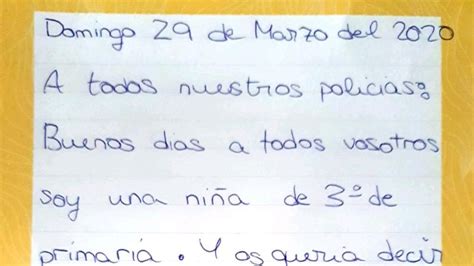 Domingo 29 de Marzo del 2020
A todos nuestros policias:
Buenos dias a todos vosotros
soy una niña de 3º de
primaria. Y os queria decir